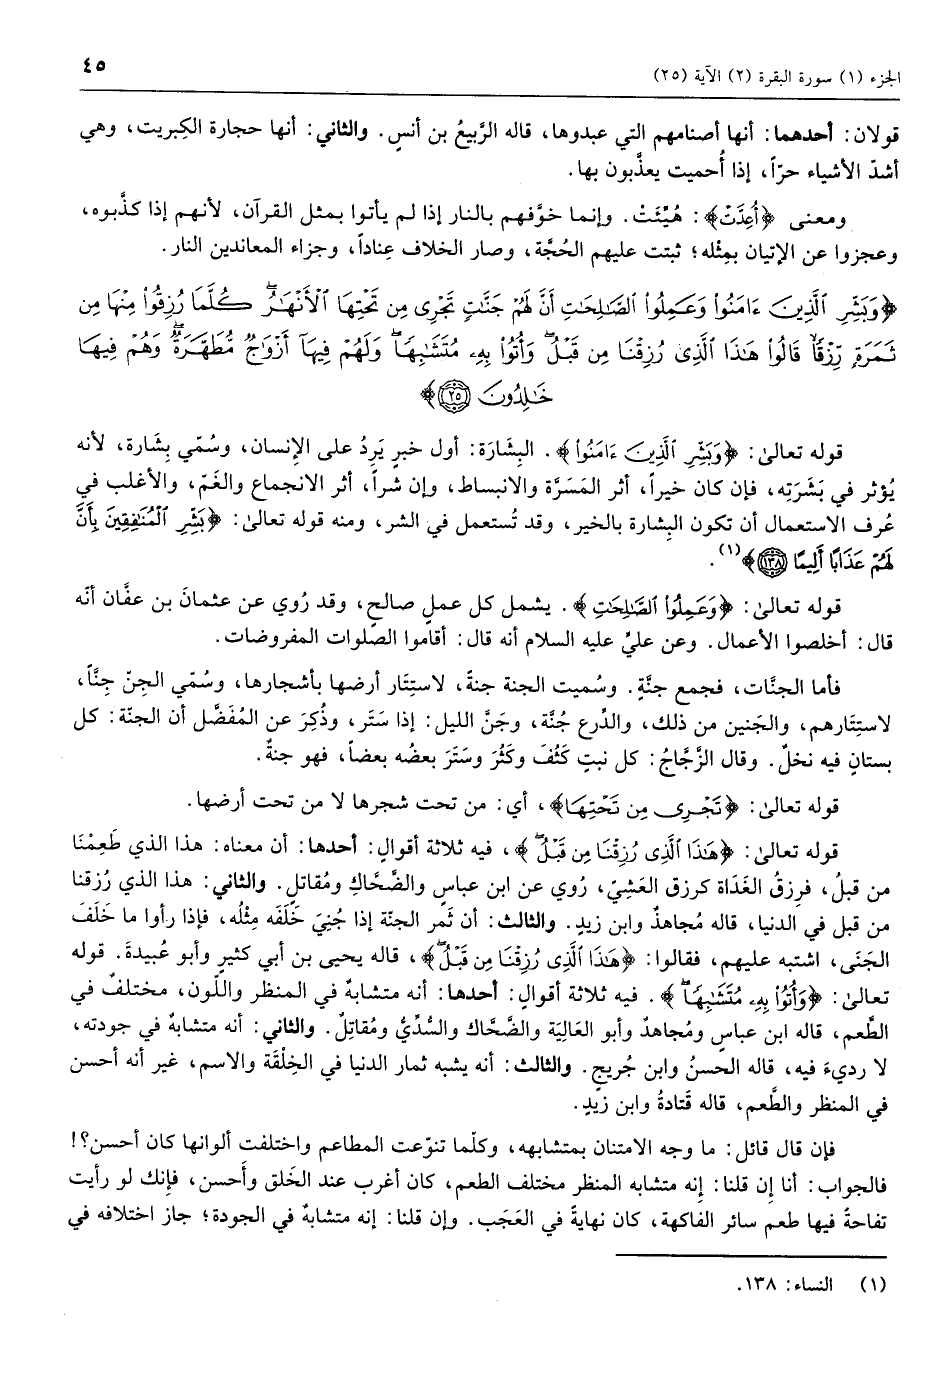 الجزء (١) سورة البقرة (٢) الآية (٢٥)
٤٥
قولان: أحدهما: أنها أصنامهم التي عبدوها، قاله الرَّبيعُ بن أنسٍ. والثاني: أنها حجارة الكِبريت، وهي
أشدّ الأشياء حرّاً، إذا أُحميت يعذَّبون بها.
ومعنى ﴿أُعِدَّتْ﴾: هُيِّئَتْ. وإنما خوَّفهم بالنار إذا لم يأتوا بمثل القرآن، لأنهم إذا كذّبوه،
وعجزوا عن الإتيان بمِثله؛ ثبتت عليهم الحُجَّة، وصار الخلاف عِناداً، وجزاء المعاندين النار.
﴿وَبَشِّرِ ٱلَّذِينَ ءَامَنُوا۟ وَعَمِلُوا۟ ٱلصَّـٰلِحَـٰتِ أَنَّ لَهُمْ جَنَّـٰتٍ تَجْرِى مِن تَحْتِهَا ٱلْأَنْهَـٰرُ ۖ كُلَّمَا رُزِقُوا۟ مِنْهَا مِن
ثَمَرَةٍ رِّزْقًا ۙ قَالُوا۟ هَـٰذَا ٱلَّذِى رُزِقْنَا مِن قَبْلُ ۖ وَأُتُوا۟ بِهِۦ مُتَشَـٰبِهًا ۖ وَلَهُمْ فِيهَآ أَزْوَٰجٌ مُّطَهَّرَةٌ ۖ وَهُمْ فِيهَا
خَـٰلِدُونَ ۝٢٥﴾
قوله تعالىٰ: ﴿وَبَشِّرِ ٱلَّذِينَ ءَامَنُوا۟﴾. البِشَارَة: أول خبرٍ يَرِدُ على الإنسان، وسُمّي بِشَارة، لأنه
يُؤثر في بَشَرَتِه، فإن كان خيراً، أثر المَسَرَّة والانبساط، وإن شراً، أثر الانجماع والغَمّ، والأغلب في
عُرف الاستعمال أن تكون البِشارة بالخير، وقد تُستعمل في الشر، ومنه قوله تعالىٰ: ﴿بَشِّرِ ٱلْمُنَـٰفِقِينَ بِأَنَّ
لَهُمْ عَذَابًا أَلِيمًا ۝١٣٨﴾(١).
قوله تعالىٰ: ﴿وَعَمِلُوا۟ ٱلصَّـٰلِحَـٰتِ﴾. يشمل كل عملٍ صالحٍ، وقد رُوي عن عثمانَ بن عفَّان أنّه
قال: أخلصوا الأعمال. وعن عليٍّ عليه السلام أنه قال: أقاموا الصلوات المفروضات.
فأما الجنَّات، فجمع جنَّةٍ. وسُميت الجنة جنةً، لاستِتَار أرضها بأشجارها، وسُمّي الجِنّ جِنًّاً،
لاستِتَارهم، والجَنين من ذلك، والدِّرع جُنَّة، وجَنَّ الليل: إذا سَتَر، وذُكِرَ عن المُفَضَّل أن الجنّة: كل
بستانٍ فيه نخلٌ. وقال الزَّجَّاجُ: كل نبتٍ كَثُفَ وكَثُرَ وسَتَرَ بعضُه بعضاً، فهو جنةٌ.
قوله تعالىٰ: ﴿تَجْرِى مِن تَحْتِهَا﴾، أي: من تحت شجرها لا من تحت أرضها.
قوله تعالىٰ: ﴿هَـٰذَا ٱلَّذِى رُزِقْنَا مِن قَبْلُ ۖ﴾، فيه ثلاثة أقوال: أحدها: أن معناه: هذا الذي طَعِمْنَا
من قبلُ، فرِزقُ الغَدَاة كرزق العَشِيّ، رُوي عن ابن عباسٍ والضَّحَّاكِ ومُقاتلٍ. والثاني: هذا الذي رُزقنا
من قبل في الدنيا، قاله مُجاهدٌ وابن زيدٍ. والثالث: أن ثَمر الجنّة إذا جُنِيَ خَلَفَه مِثلُه، فإذا رأوا ما خَلَفَ
الجَنَى، اشتبه عليهم، فقالوا: ﴿هَـٰذَا ٱلَّذِى رُزِقْنَا مِن قَبْلُ ۖ﴾، قاله يحيى بن أبي كثيرٍ وأبو عُبيدةَ. قوله
تعالىٰ: ﴿وَأُتُوا۟ بِهِۦ مُتَشَـٰبِهًا ۖ﴾. فيه ثلاثة أقوال: أحدها: أنه متشابهٌ في المنظر واللّون، مختلفٌ في
الطَّعم، قاله ابن عباسٍ ومُجاهدٌ وأبو العَالِيَة والضَّحَّاك والسُّدِّيُّ ومُقاتلٌ. والثاني: أنه متشابهٌ في جودته،
لا رديءَ فيه، قاله الحسنُ وابن جُريجٍ. والثالث: أنه يشبه ثمار الدنيا في الخِلْقَة والاسم، غير أنه أحسن
في المنظر والطَّعم، قاله قَتادةُ وابن زيدٍ.
فإن قال قائل: ما وجه الامتنان بمتشابهه، وكلّما تنوّعت المطاعم واختلفت ألوانها كان أحسن؟!
فالجواب: أنا إن قلنا: إنه متشابه المنظر مختلف الطعم، كان أغرب عند الخَلق وأَحسن، فإنك لو رأيت
تفاحةً فيها طعم سائر الفاكهة، كان نهايةً في العَجَب. وإن قلنا: إنه متشابهٌ في الجودة؛ جاز اختلافه في
(١) النساء: ١٣٨.